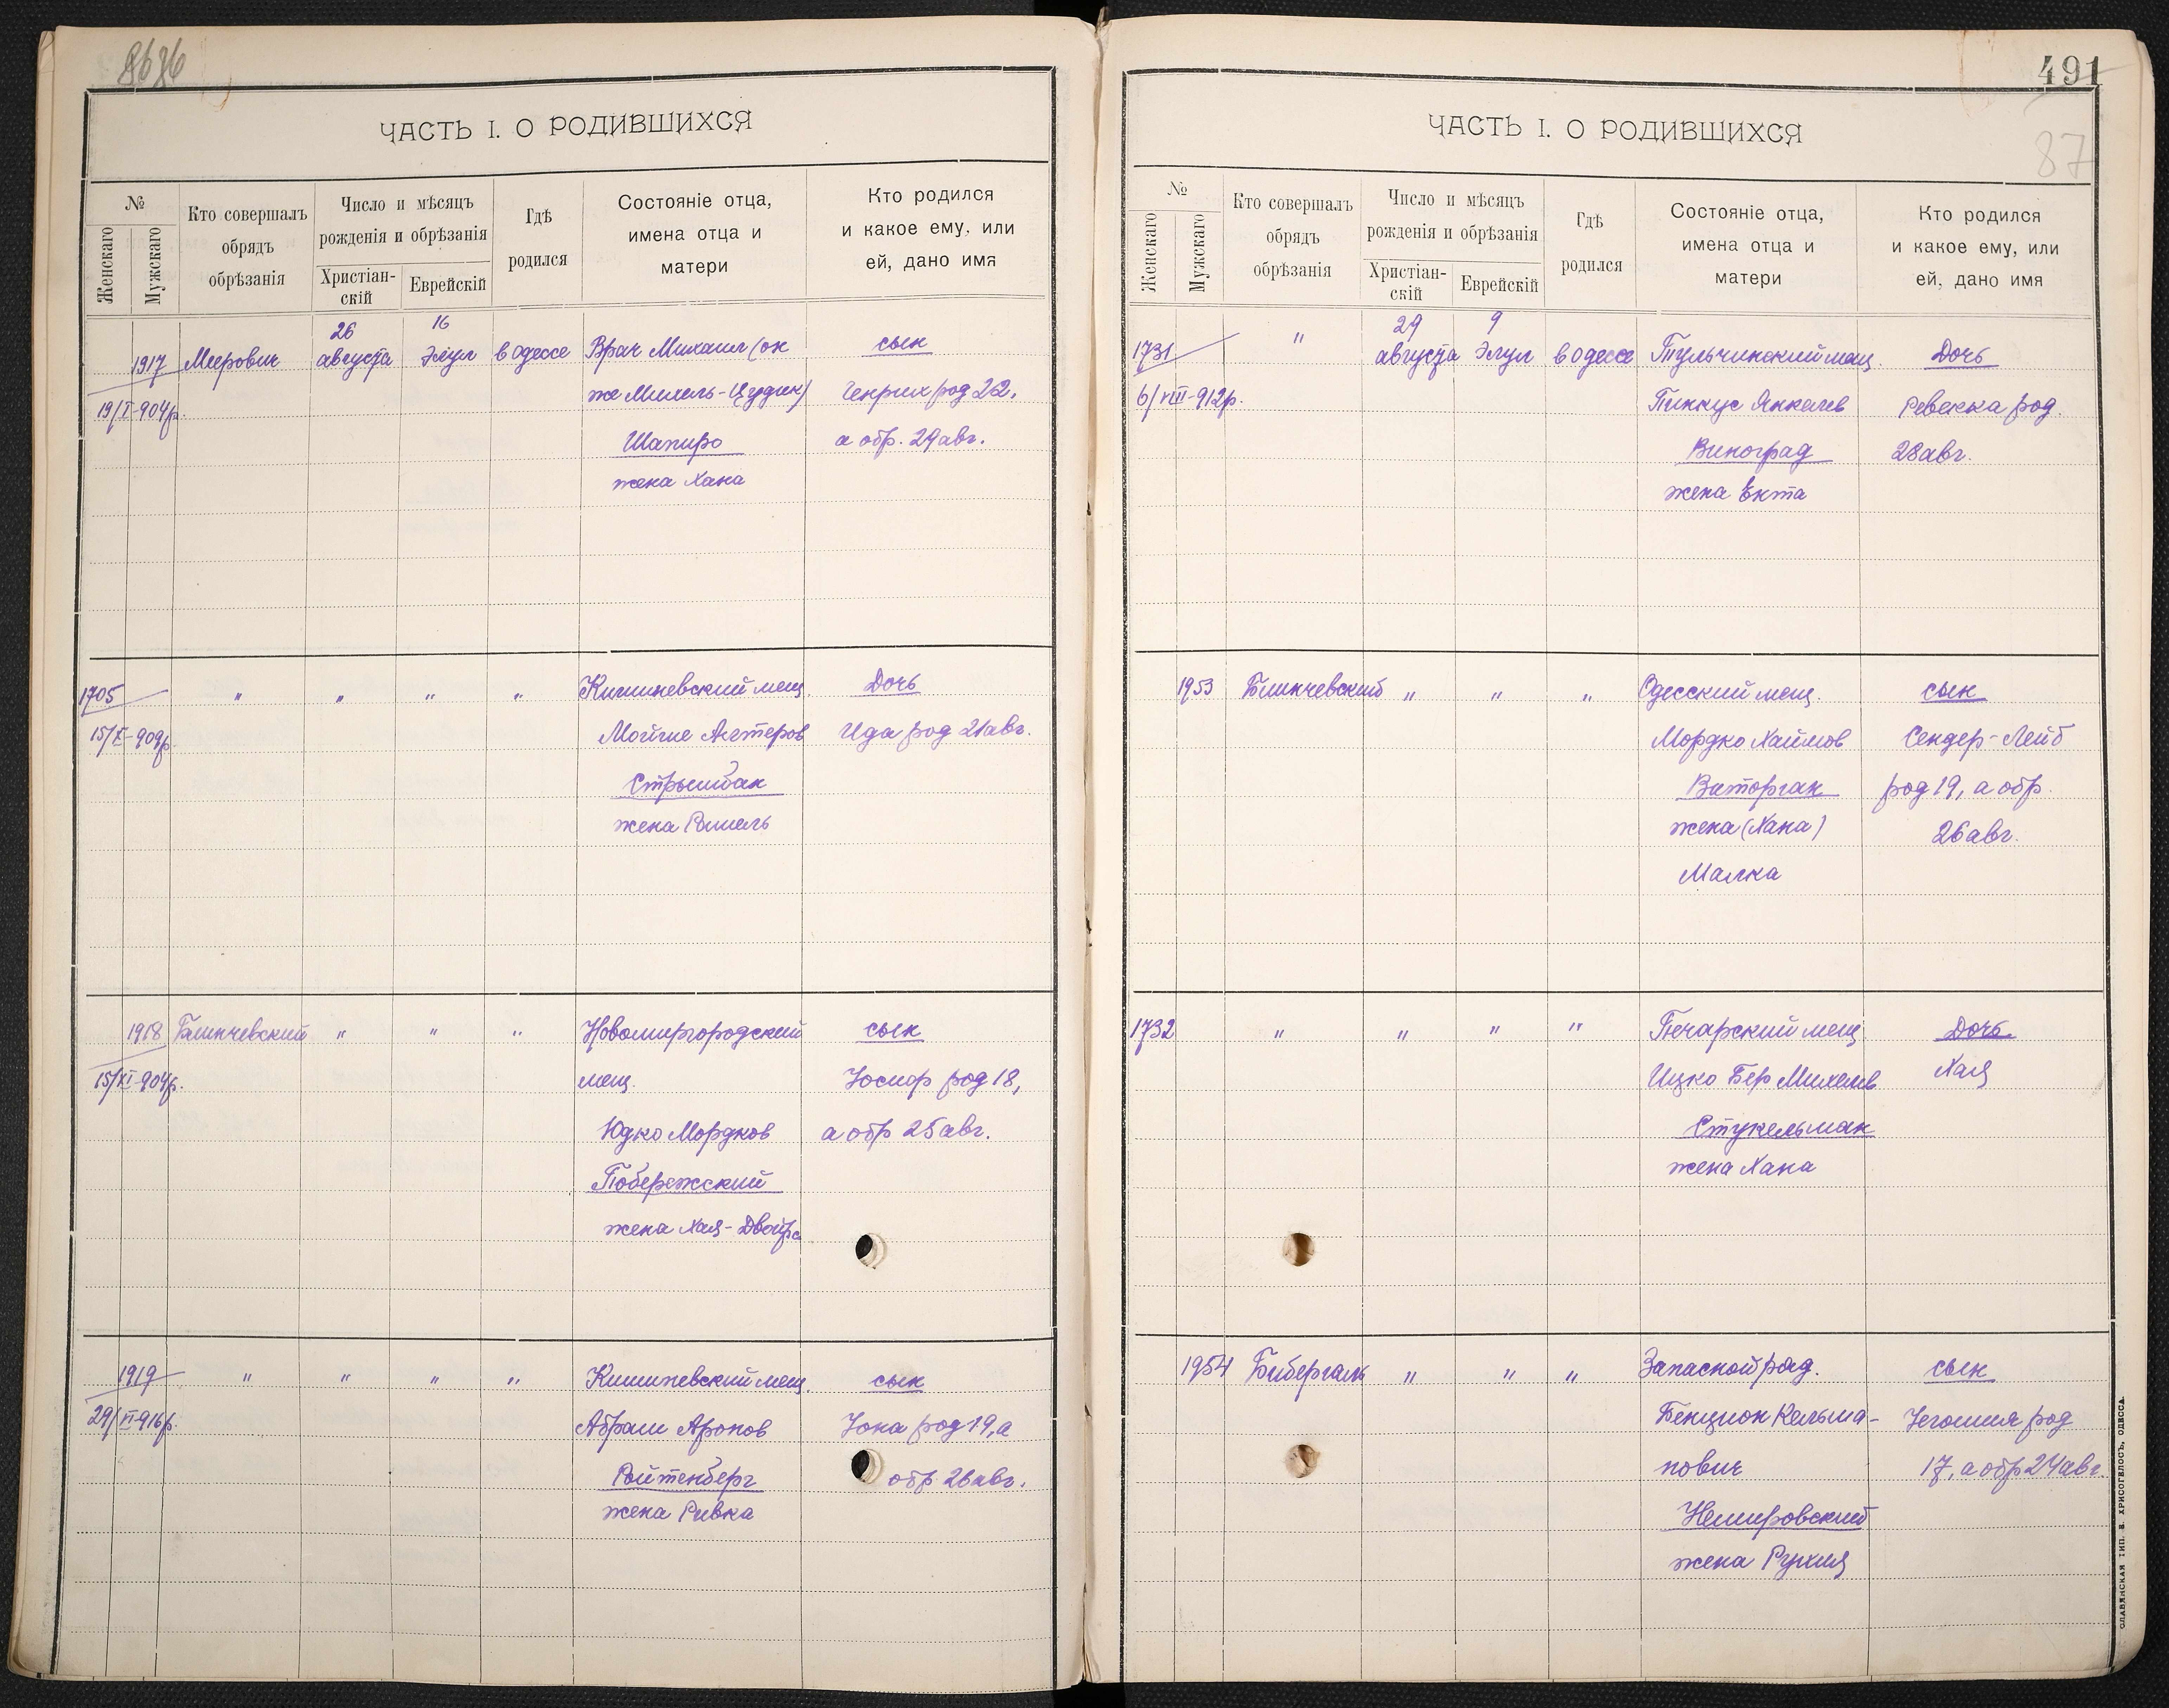 491
87
ЧАСТЬ I. О РОДИВШИХСЯ
№
Женскаго
Мужскаго
Кто совершалъ
обрядъ
обрѣзанія
Число и мѣсяцъ
рожденія и обрѣзанія
Христіан-
скій
Еврейскій
Гдѣ
родился
Состояніе отца,
имена отца и
матери
Кто родился
и какое ему, или
ей, дано имя
1917 Меерович 26 августа 16 Элул в Одессе Врач Михаил (он сын
19/I-904р. же Михель-Цудик) Генрих род 22,
Шапиро а обр. 29 авг.
жена Хана
1705 " " " " Кишиневский мещ Дочь
15/X-909р. Мойше Ахтеров Ида род 21 авг.
жена Рашель
1918 Блинчевский " " " Новомиргородский сын
15/XI-904р. мещ. Іосиф род 18,
Юдко Мордков а обр 25 авг.
Побережский
жена Хая-Двойра
1919 " " " " Кишиневский мещ. сын
29/VI-916р. Абрам Аронов Іона род 19, а
Ройтенберг обр 26 авг.
жена Ривка
ЧАСТЬ I. О РОДИВШИХСЯ
№
Женскаго
Мужскаго
Кто совершалъ
обрядъ
обрѣзанія
Число и мѣсяцъ
рожденія и обрѣзанія
Христіан-
скій
Еврейскій
Гдѣ
родился
Состояніе отца,
имена отца и
матери
Кто родился
и какое ему, или
ей, дано имя
1731 " 29 августа 9 Элул в Одессе Тульчинский мещ. Дочь
6/VIII-912р. Пинкус Янкелев Ревекка род.
Виноград 28 авг.
жена Ента
1953 Блинчевский " " " Одесский мещ. сын
Мордко Хаимов Сендер-Лейб
Ваторган род 19, а обр.
жена (Хана) 26 авг.
Малка
1732 " " " " Печарский мещ. Дочь
Ицко Бер Михелев Хая
Стукельман
жена Хана
1954 Бибергаль " " " Запасной ряд. сын
Бенцион Кельма- Іегошия род
нович 17, а обр 24 авг.
Немировский
жена Рухля
СЛАВЯНСКАЯ ТИП. Е. ХРИСОГЕЛОСЪ, ОДЕССА.